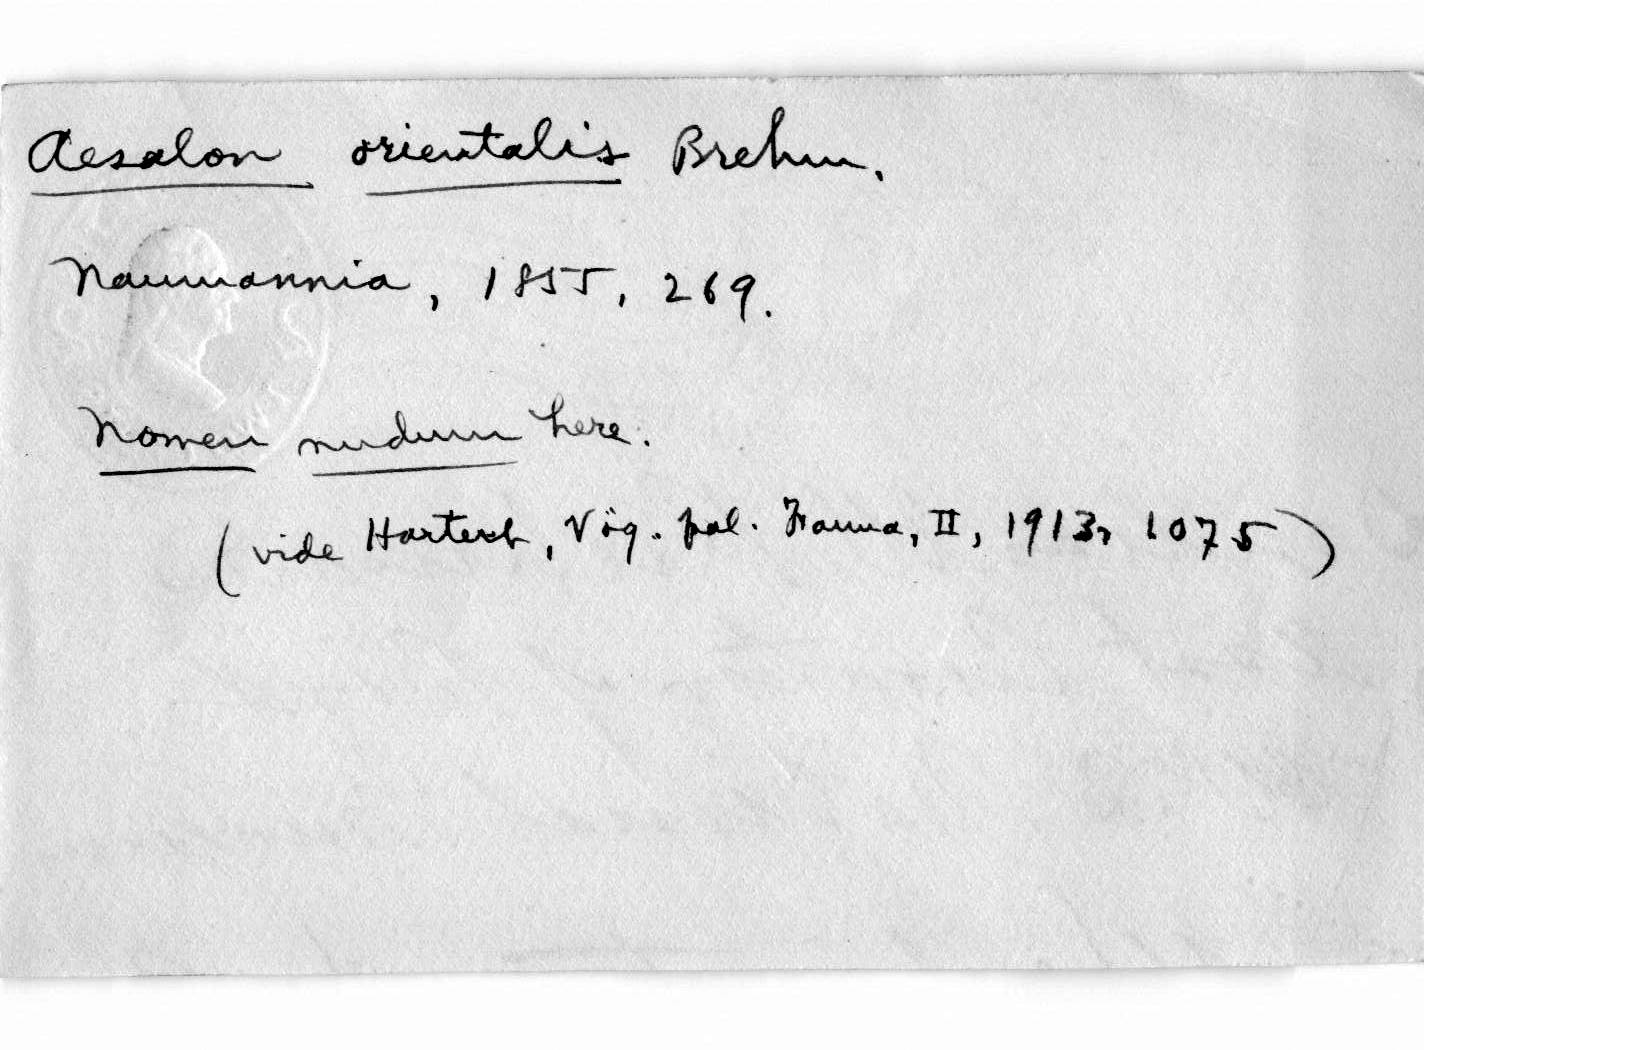 Aesalon orientalis Brehm.
Naumannia, 1855, 269.
Nomen nudum here.
(vide Hartert, Vög. pal. Fauna, II, 1913, 1075)